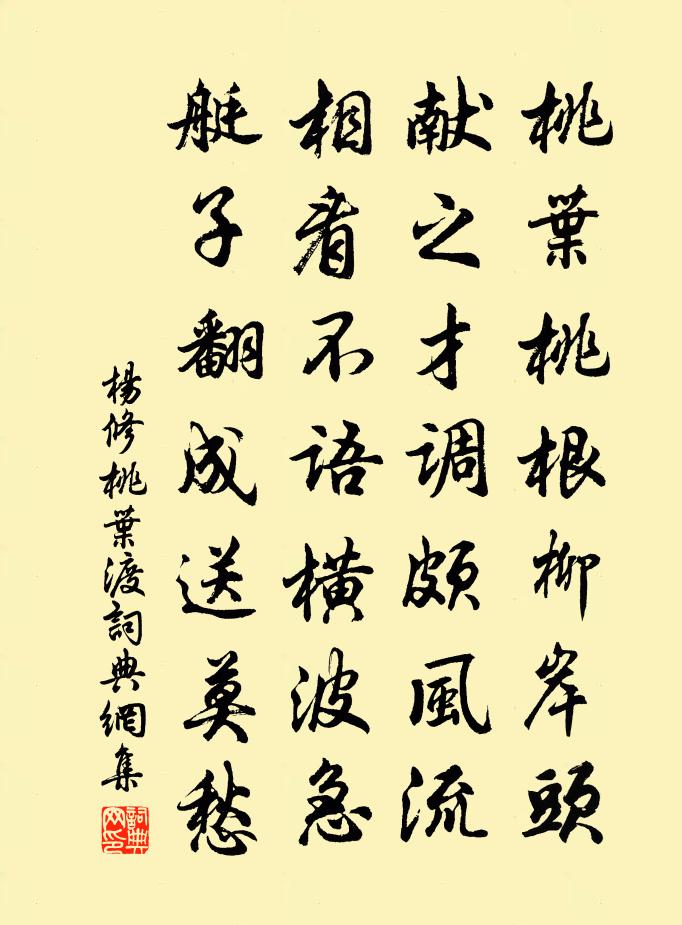 桃葉桃根柳岸頭
献之才調頗風流
相看不語橫波急
艇子翻成送莫愁
楊修桃葉渡詞典網集
詞典網印